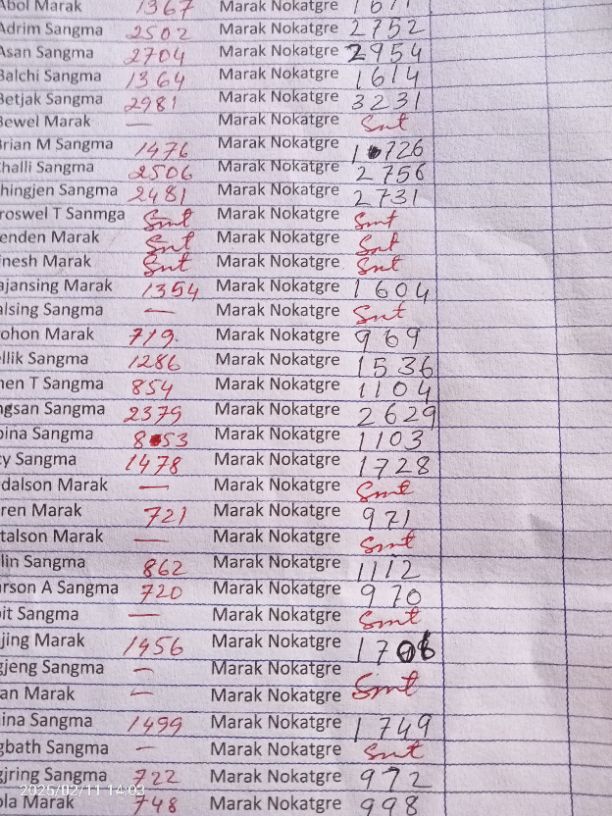 Abol Marak 1367 Marak Nokatgre 1617
Adrim Sangma 2502 Marak Nokatgre 2752
Asan Sangma 2704 Marak Nokatgre 2954
Balchi Sangma 1364 Marak Nokatgre 1614
Betjak Sangma 2981 Marak Nokatgre 3231
Bewel Marak — Marak Nokatgre Smt
Brian M Sangma 1476 Marak Nokatgre 1726
Challi Sangma 2506 Marak Nokatgre 2756
hingjen Sangma 2481 Marak Nokatgre 2731
roswel T Sanmga Smt Marak Nokatgre Smt
enden Marak Smt Marak Nokatgre Smt
inesh Marak Smt Marak Nokatgre Smt
ajansing Marak 1354 Marak Nokatgre 1604
alsing Sangma — Marak Nokatgre Smt
ohon Marak 719. Marak Nokatgre 969
ellik Sangma 1286 Marak Nokatgre 1536
hen T Sangma 854 Marak Nokatgre 1104
ngsan Sangma 2379 Marak Nokatgre 2629
bina Sangma 853 Marak Nokatgre 1103
cy Sangma 1478 Marak Nokatgre 1728
dalson Marak — Marak Nokatgre Smt
ren Marak 721 Marak Nokatgre 971
talson Marak — Marak Nokatgre Smt
lin Sangma 862 Marak Nokatgre 1112
arson A Sangma 720 Marak Nokatgre 970
bit Sangma — Marak Nokatgre Smt
jing Marak 1456 Marak Nokatgre 1706
gjeng Sangma — Marak Nokatgre
an Marak — Marak Nokatgre Smt
ina Sangma 1499 Marak Nokatgre 1749
gbath Sangma — Marak Nokatgre Smt
gjring Sangma 722 Marak Nokatgre 972
2025/02/11 14:03
ola Marak 748 Marak Nokatgre 998